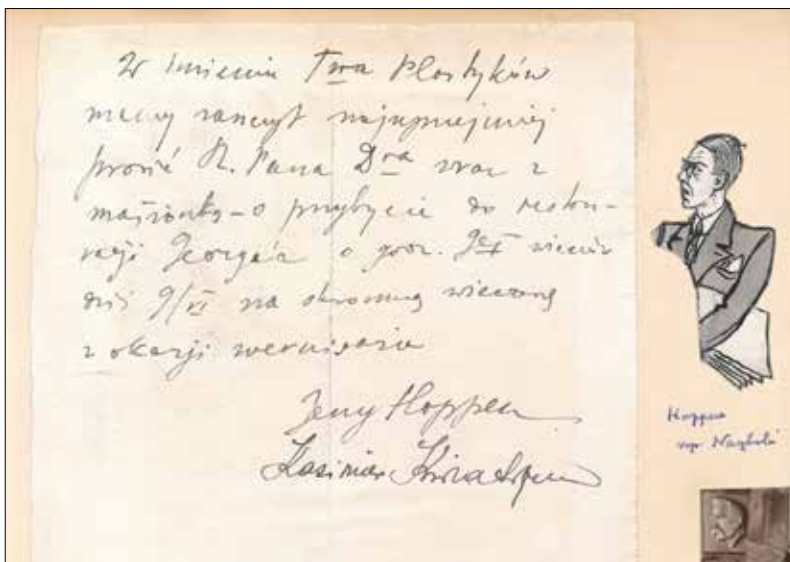 W imieniu Twa Plastyków
mamy zaszczyt najuprzejmiej
prosić W. Pana Dra wraz z
małżonką – o przybycie do restau-
racji Georges'a o godz. wieczór
dziś 9/VI na skromną wieczerzę
z okazji wernisażu
Jerzy Hoppen
Kazimierz
Hoppen
rys.